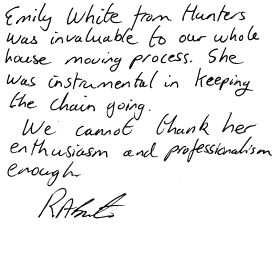 Emily White from Hunters
was invaluable to our whole
house moving process. She
was instrumental in keeping
the chain going.
We cannot thank her
enthusiasm and professionalism
enough